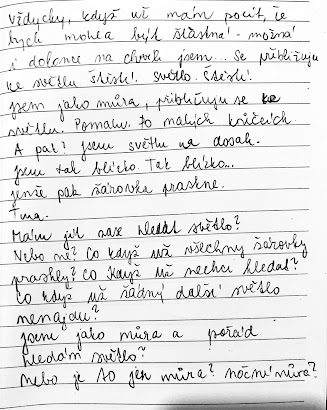 Vždycky, když už mám pocit, že
bych mohla být šťastná - možná
i dokonce na chvíli jsem... Se přibližuju
ke světlu štěstí. Světlo. Štěstí.
Jsem jako můra, přibližuju se ke
světlu. Pomalu. Po malých krůčcích.
A pak? Jsem světlu na dosah.
Jsem tak blízko. Tak blízko...
Jenže pak žárovka praskne.
Tma.
Mám jít zase hledat světlo?
Nebo ne? Co když už všechny žárovky
praskly? Co když už nechci hledat?
Co když už žádný další světlo
nenajdu?
Jsem jako můra a pořád
hledám světlo?
Nebo je to jen můra? Noční můra?